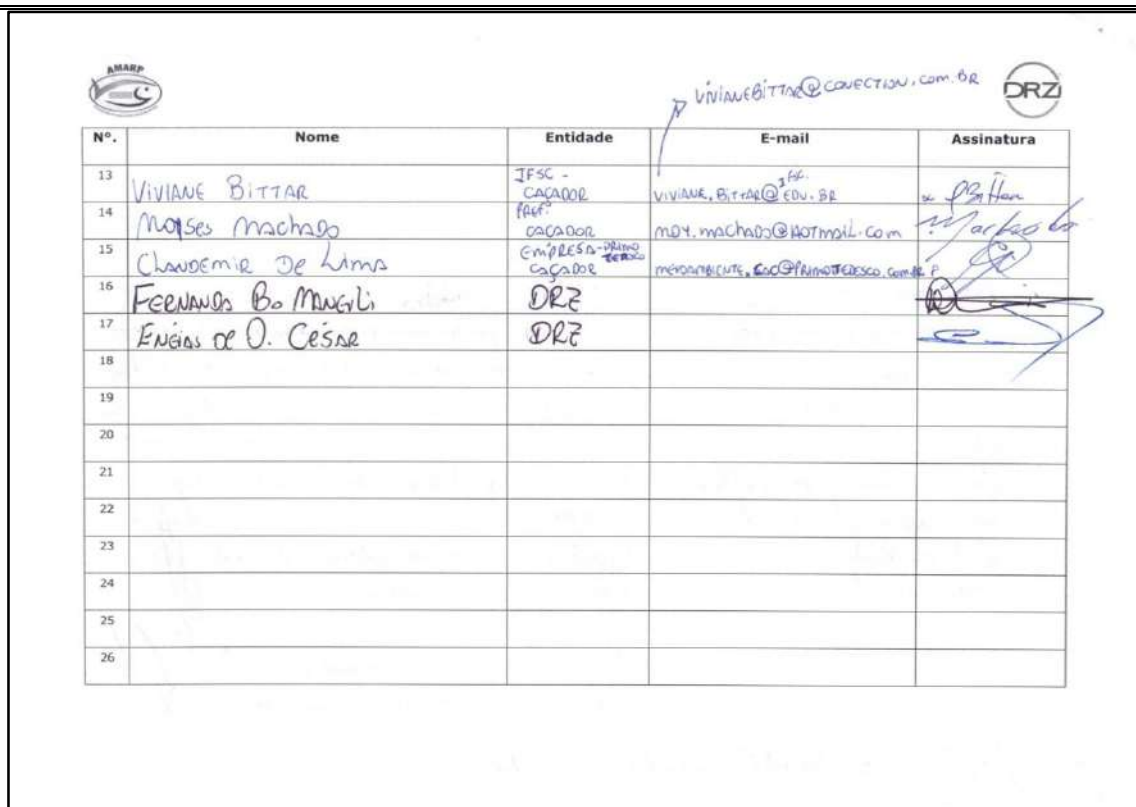 AMARP
VIVIANEBITTAR@CONECTION.COM.BR
DRZ
Nº. Nome Entidade E-mail Assinatura
13 VIVIANE BITTAR IFSC - CAÇADOR VIVIANE.BITTAR@IFSC.EDU.BR
14 MOYSES MACHADO PREF. CAÇADOR MOY.MACHADO@HOTMAIL.COM Machado
15 CLAUDEMIR DE LIMA EMPRESA-PRIMO TEDESCO CAÇADOR MEIOAMBIENTE.CAC@PRIMOTEDESCO.COM.BR
16 FERNANDA BO MANGILI DRZ
17 ENÉIAS DE O. CÉSAR DRZ
18
19
20
21
22
23
24
25
26